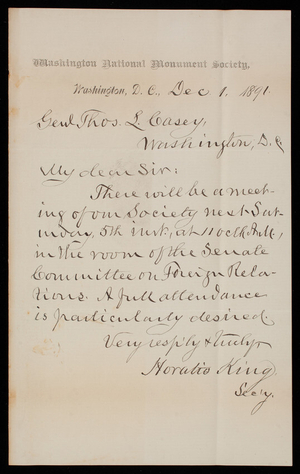 Washington National Monument Society,
Washington, D. C., Dec. 1, 1891
Genl. Thos. L. Casey,
Washington, D.C.
My dear Sir:
There will be a meet-
ing of our Society next Sat-
urday, 5th inst., at 11 oclk A.M.,
in the room of the Senate
Committee on Foreign Rela-
tions. A full attendance
is particularly desired.
Very resp'ly & truly
Horatio King
Sec'y.